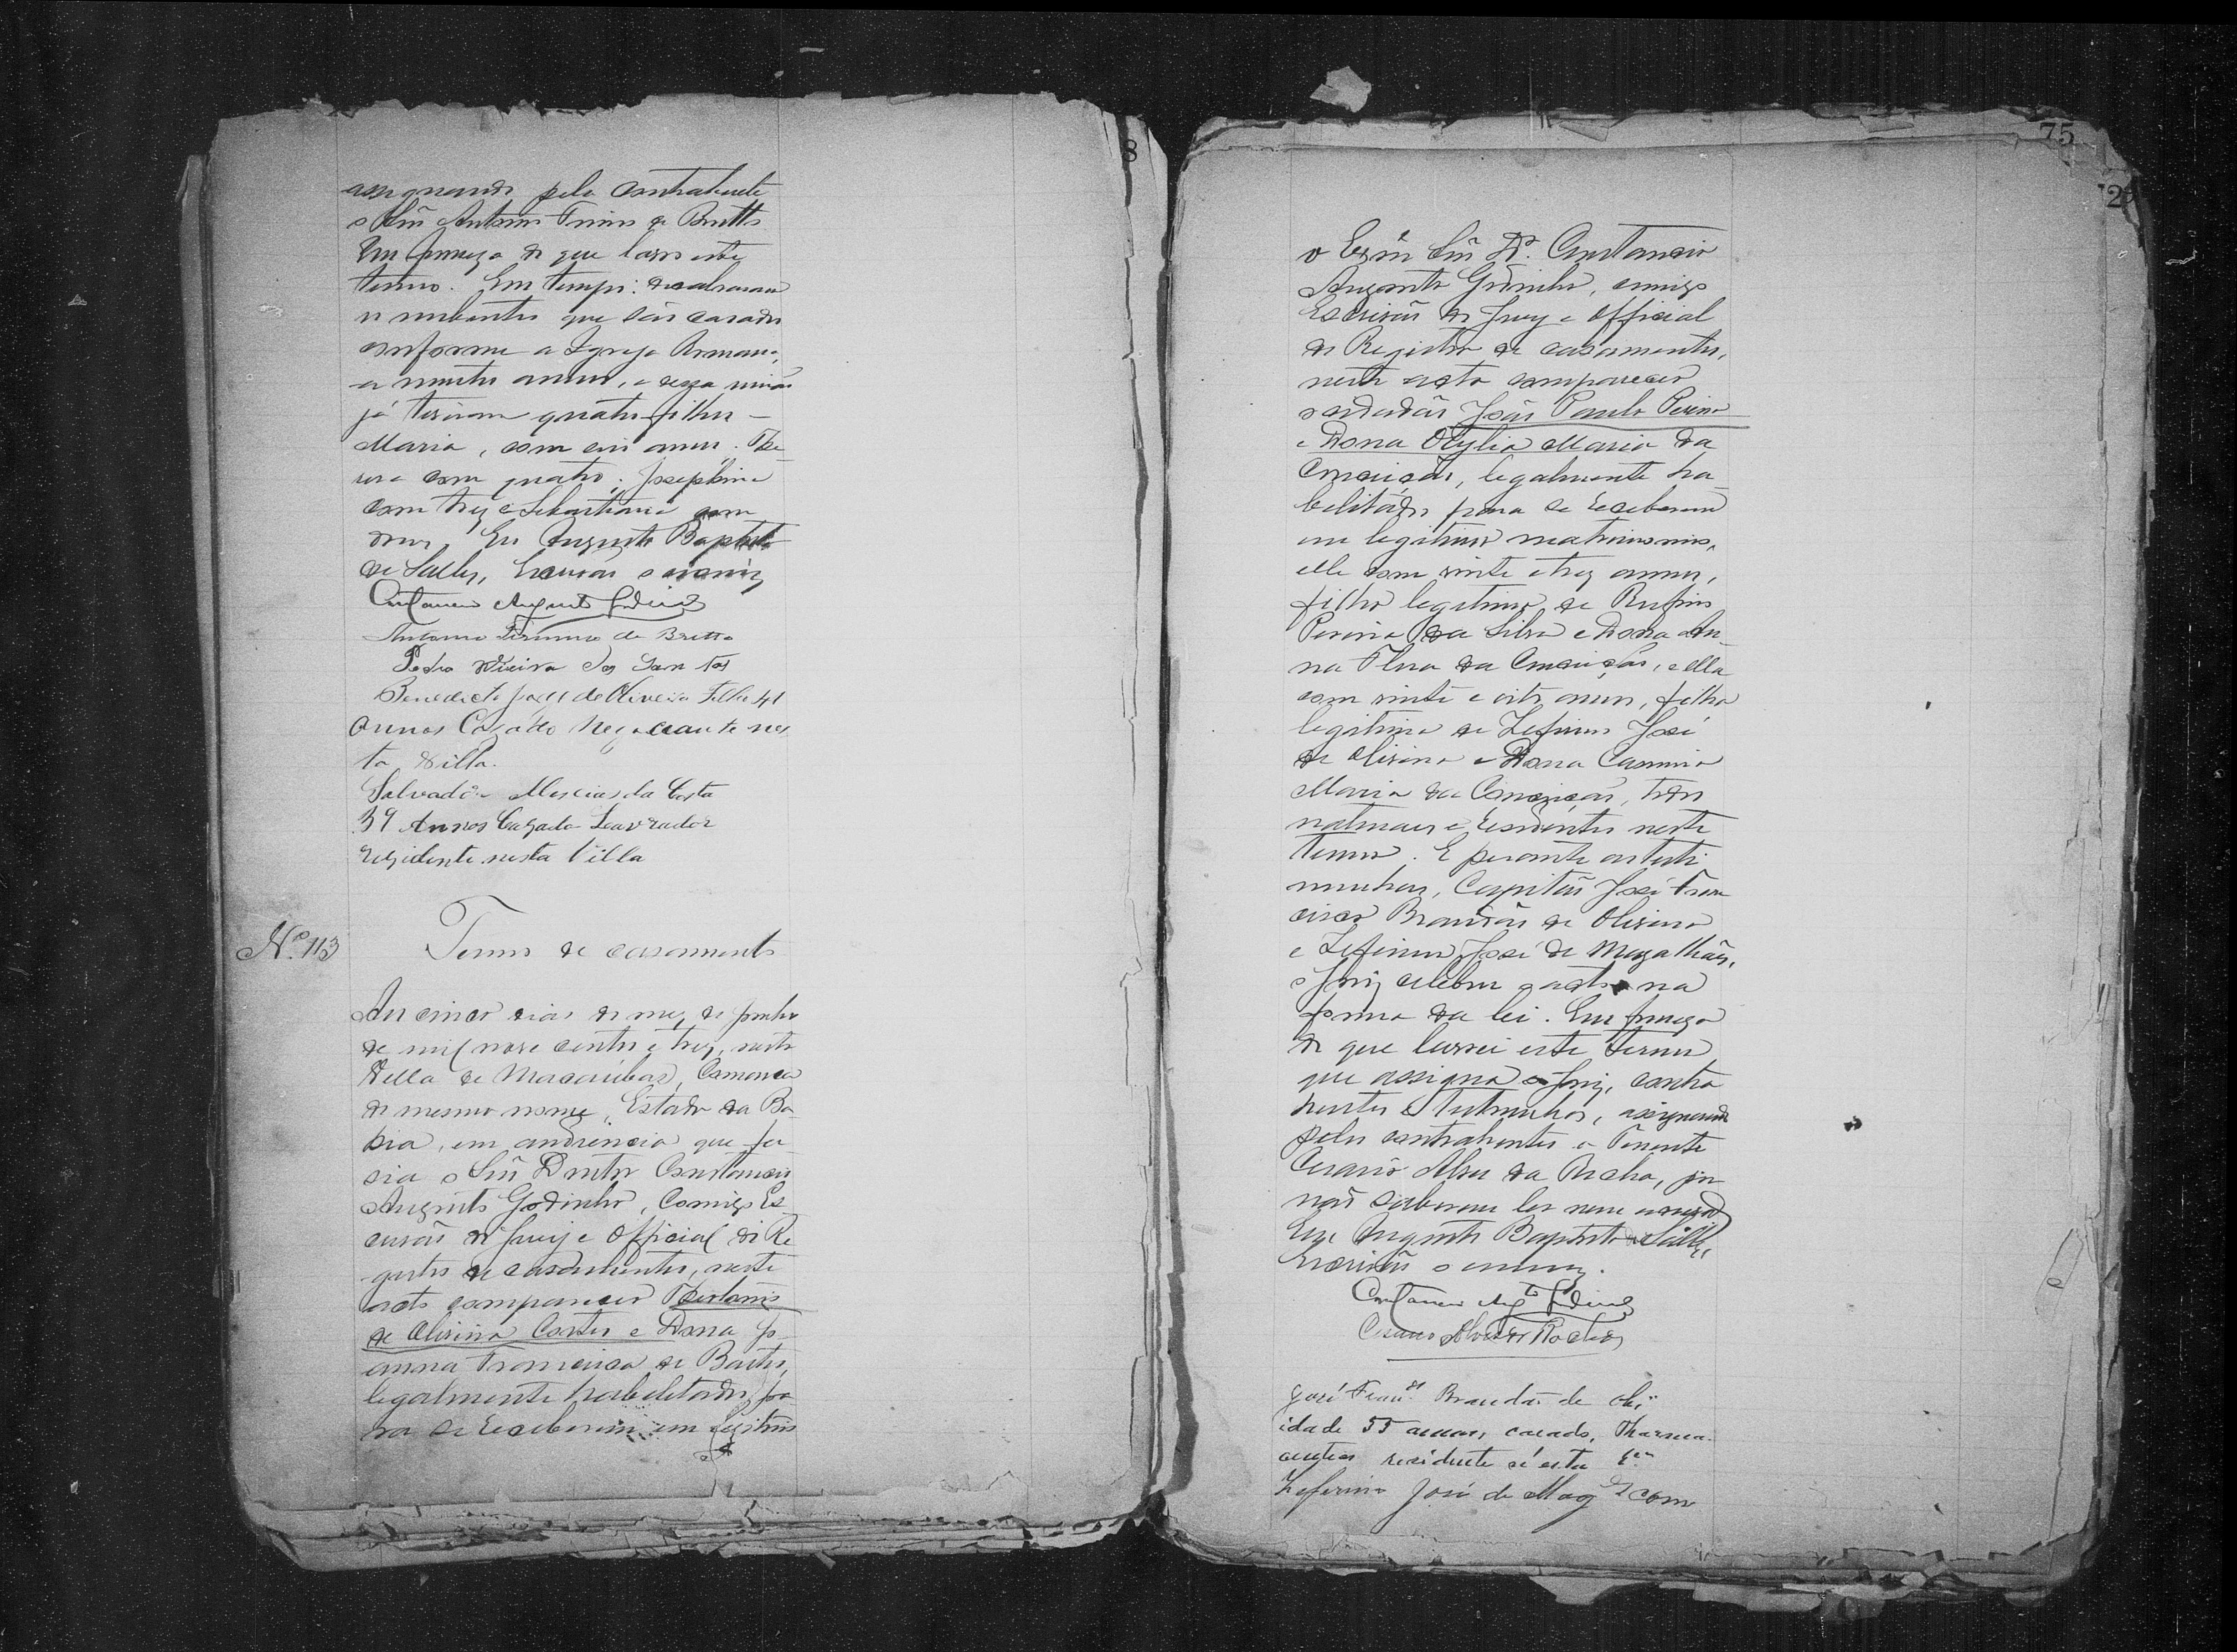 8
assignando pela contrahente
o Snr Antonio Firmino de Britto
Em firmeza do que lavro este
termo. Em tempo: declararam
os nubentes que são casados
conforme a Igreja Romana,
a muitos annos, e dessa união
já tiveram quatro filhos –
Maria, com seis annos; The
com quatro; Josephina
com trez e Sebastiana com
dous. Eu Augusto Baptista
de Salles, Escrivão o escrevi
Constancio Augusto Godinho
Antonio Firmino de Britto
Pedro Vieira dos Santos
Benedicto José de Oliveira Filho 41
annos Cazado Negociante nes
ta Villa.
Salvador Messias da Costa
39 Annos Cazado Lavrador
rezidente nesta Villa
Nº. 113
Termo de casamento
Aos cinco dias do mez de junho
de mil nove centos e trez, nesta
Villa de Macaúbas, Comarca
do mesmo nome, Estado da Ba
hia, em audiencia que fa
zia o Snr Doutor Constancio
Augusto Godinho, Comigo Es
crivão do Juizo e Official do Re
gistro de casamentos, neste
acto compareceu
de Oliveira Cortes e Dona Jo
anna Francisca de Bastos,
legalmente habelitados pa
ra se receberem em legitimo
75
2
o Exmº Snr Dr. Constancio
Augusto Godinho, comigo
Escrivão do Juizo e Official
do Registro de casamentos,
neste acto compareceu
o cidadão João Paulo Pereira
e Dona Otylia Maria da
Conceição, legalmente ha
belitados para se receberem
em legitimo matrimonio,
elle com vinte e trez annos,
filho legitimo de Rufino
Pereira da Silva e Dona An
na Flora da Conceição, e ella
com vinte e oito annos, filha
legitima de Zeferino José
de Oliveira e Dona Casimira
Maria da Conceição, todos
naturaes e residentes neste
termo. E perante as testi
munhas, Capitão José Fran
cisco Brandão de Oliveira
e Zeferino José de Magalhães,
o Juiz celebra o acto na
forma da lei. Em firmeza
do que lavrei este termo
que assigna o Juiz, contra
hentes e testemunhas, assignando
pelos contrahentes o Tenente
Cesario Alves da Rocha, por
não saberem ler nem escrever
Eu, Augusto Baptista de Salles,
Escrivão o escrevi.
Constancio Augto Godinho
Cesario Alves da Rocha
José Franco Brandão de Olivª
idade 55 annos, casado, Pharma
ceutico residente n'esta Vª
Zeferino José de Mages com